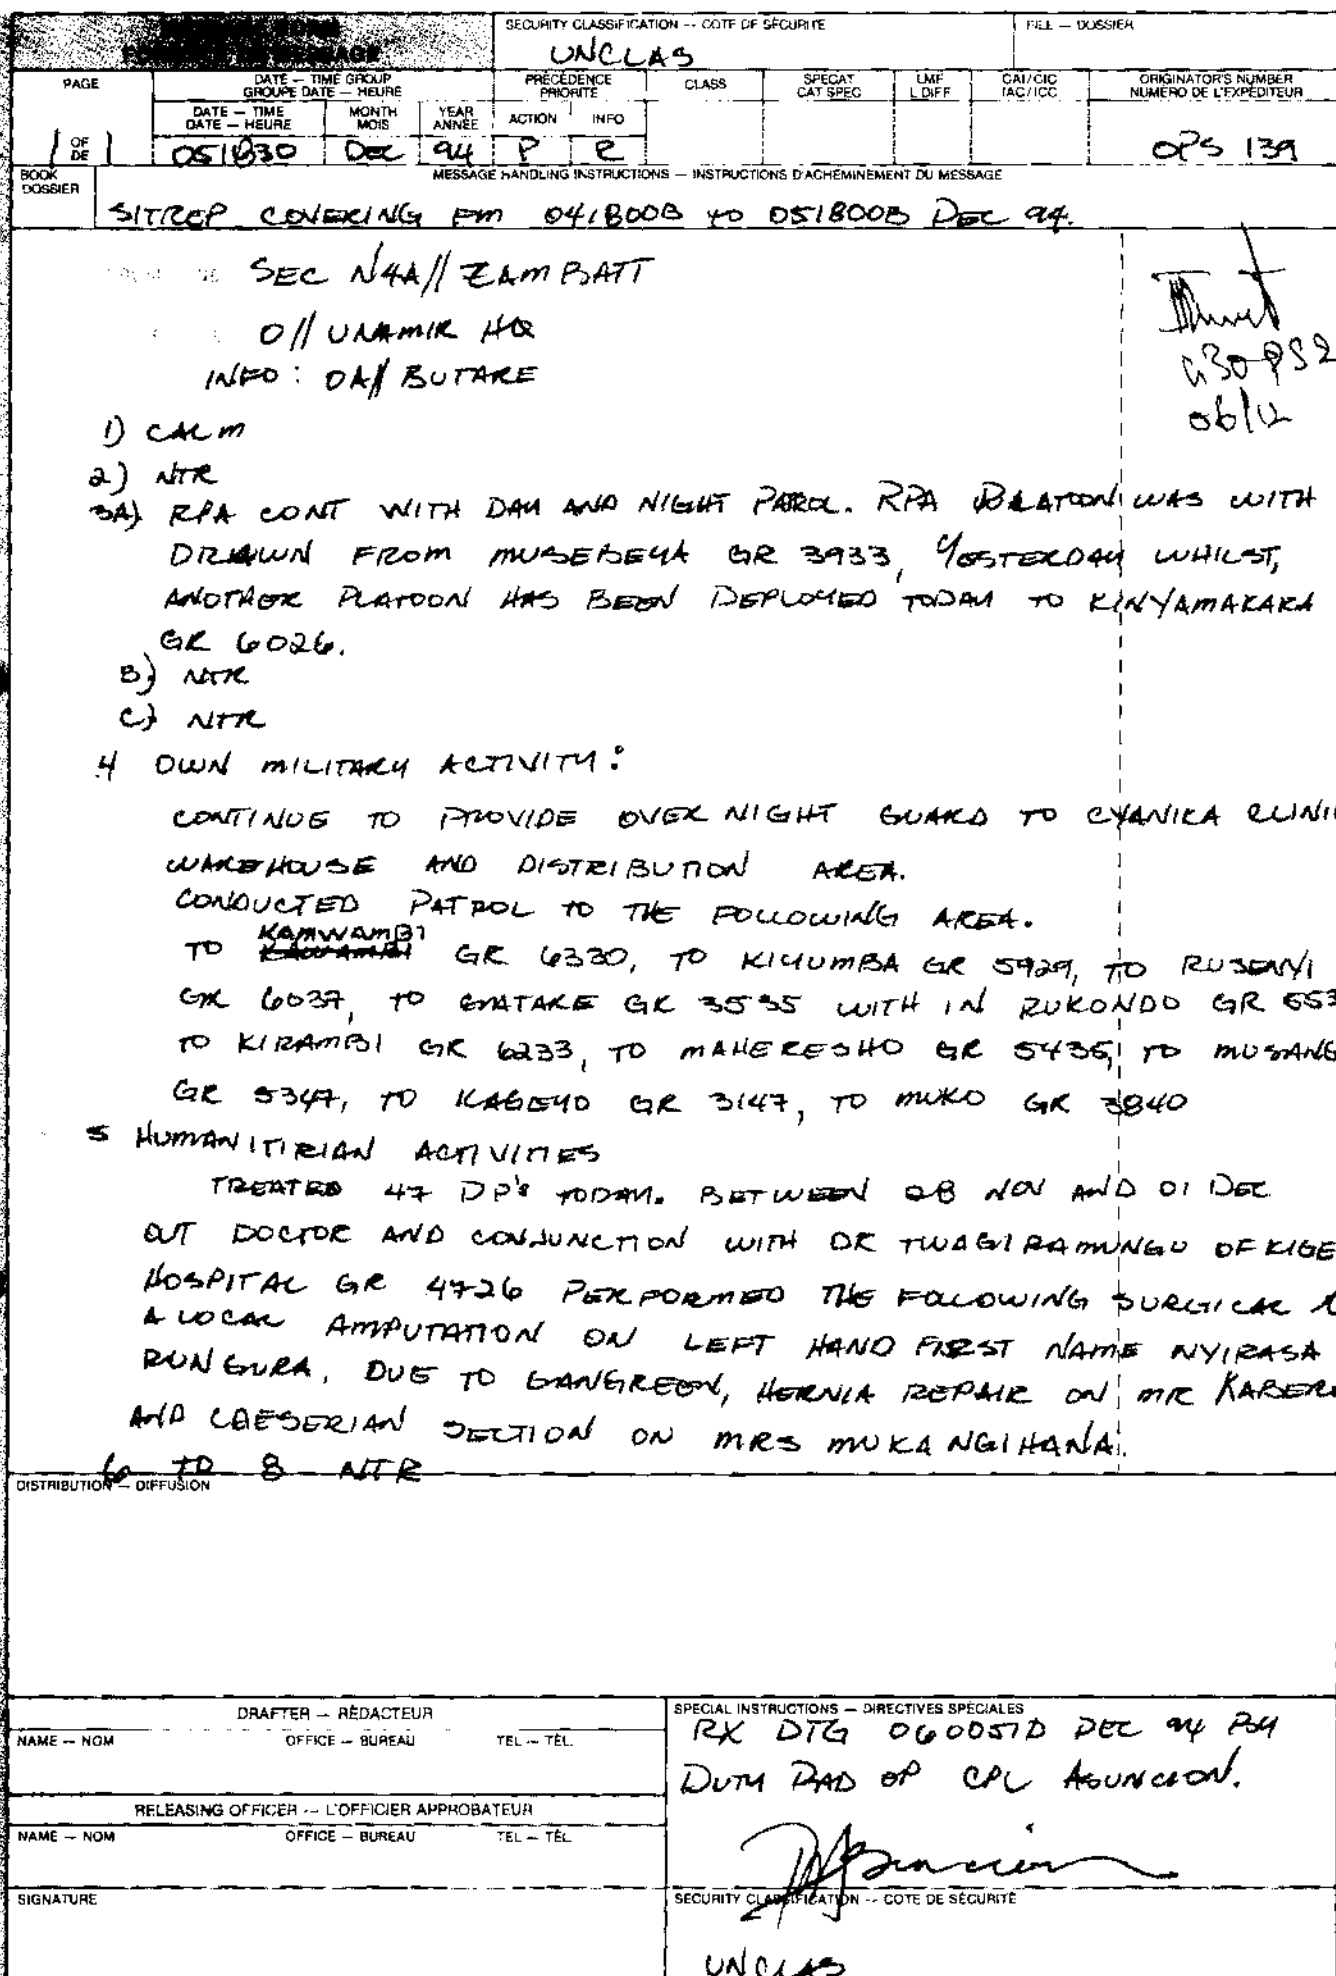 SECURITY CLASSIFICATION -- COTE DE SÉCURITÉ
FILE — DOSSIER
UNCLAS
PAGE
DATE — TIME GROUP
GROUPE DATE — HEURE
PRÉCÉDENCE
PRIORITÉ
CLASS
SPECAT
CAT SPEC
LMF
L DIFF
CAI/CIC
IAC/ICC
ORIGINATOR'S NUMBER
NUMÉRO DE L'EXPÉDITEUR
DATE — TIME
DATE — HEURE
MONTH
MOIS
YEAR
ANNÉE
ACTION
INFO
1 OF
DE 1
051830 DEC 94 P R
OPS 139
BOOK
DOSSIER
MESSAGE HANDLING INSTRUCTIONS — INSTRUCTIONS D'ACHEMINEMENT DU MESSAGE
SITREP COVERING FM 041800B TO 051800B DEC 94.
SEC N4A// ZAMBATT
O// UNAMIR HQ
INFO: OA// BUTARE
06/12
1) CALM
2) NTR
3A) RPA CONT WITH DAY AND NIGHT PAROL. RPA PLATOON WAS WITH
DRAWN FROM MUSEBEYA GR 3933, YESTERDAY WHILST,
ANOTHER PLATOON HAS BEEN DEPLOYED TODAY TO KINYAMAKARA
GR 6026.
B) NTR
C) NTR
4 OWN MILITARY ACTIVITY:
CONTINUE TO PROVIDE OVER NIGHT GUARD TO CYANIKA CLINI
WAREHOUSE AND DISTRIBUTION AREA.
CONDUCTED PATROL TO THE FOLLOWING AREA.
TO KAMWAMBI GR 6330, TO KIYUMBA GR 5929, TO RUSENYI
GR 6037, TO GATARE GR 3535 WITH IN RUKONDO GR 553
TO KIRAMBI GR 6233, TO MAHERESHO GR 5435, TO MUSANG
GR 5347, TO KAGEYO GR 3147, TO MUKO GR 3840
5 HUMANITIRIAN ACTIVITIES
TREATED 47 DP's TODAY. BETWEEN 28 NOV AND 01 DEC
OUT DOCTOR AND CONJUNCTION WITH DR TWAGIRAMUNGU OF KIGE
HOSPITAL GR 4726 PERFORMED THE FOLLOWING SURGICAL
A LOCAL AMPUTATION ON LEFT HAND FIRST NAME NYIRASA
RUNGURA, DUE TO GANGREEN, HERNIA REPAIR ON MR KABER
AND CAESERIAN SECTION ON MRS MUKANGIHANA.
6 TO 8 NTR
DISTRIBUTION — DIFFUSION
DRAFTER — RÉDACTEUR
NAME — NOM
OFFICE — BUREAU
TEL — TÉL.
SPECIAL INSTRUCTIONS — DIRECTIVES SPÉCIALES
RX DTG 060051D DEC 94 BY
DUTY RAD OP CPL ASUNCION.
RELEASING OFFICER -- L'OFFICIER APPROBATEUR
NAME — NOM
OFFICE — BUREAU
TEL — TÉL.
SIGNATURE
SECURITY CLASSIFICATION -- COTE DE SÉCURITÉ
UNCLAS